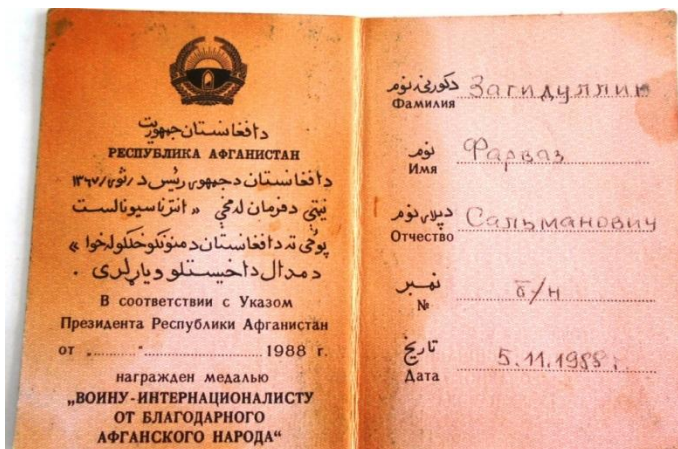 دافغانستان جمهوریت
РЕСПУБЛИКА АФГАНИСТАН
دافغانستان دجمهوری رئیس د /ثور/ ۱۳۶۷
نیټې دفرمان له مخې « انترناسیونالست
پوځي ته دافغانستان دمننوونکو خلکو له خوا »
دمدال داخیستلو ویاړلری .
В соответствии с Указом
Президента Республики Афганистан
от „........“ .................... 1988 г.
награжден медалью
„ВОИНУ-ИНТЕРНАЦИОНАЛИСТУ
ОТ БЛАГОДАРНОГО
АФГАНСКОГО НАРОДА“
دکورنی نوم
Фамилия Загидуллин
نوم
Имя Фарваз
دپلار نوم
Отчество Сальманович
نمبر
№ б/н
تاریخ
Дата 5.11.1988 г.